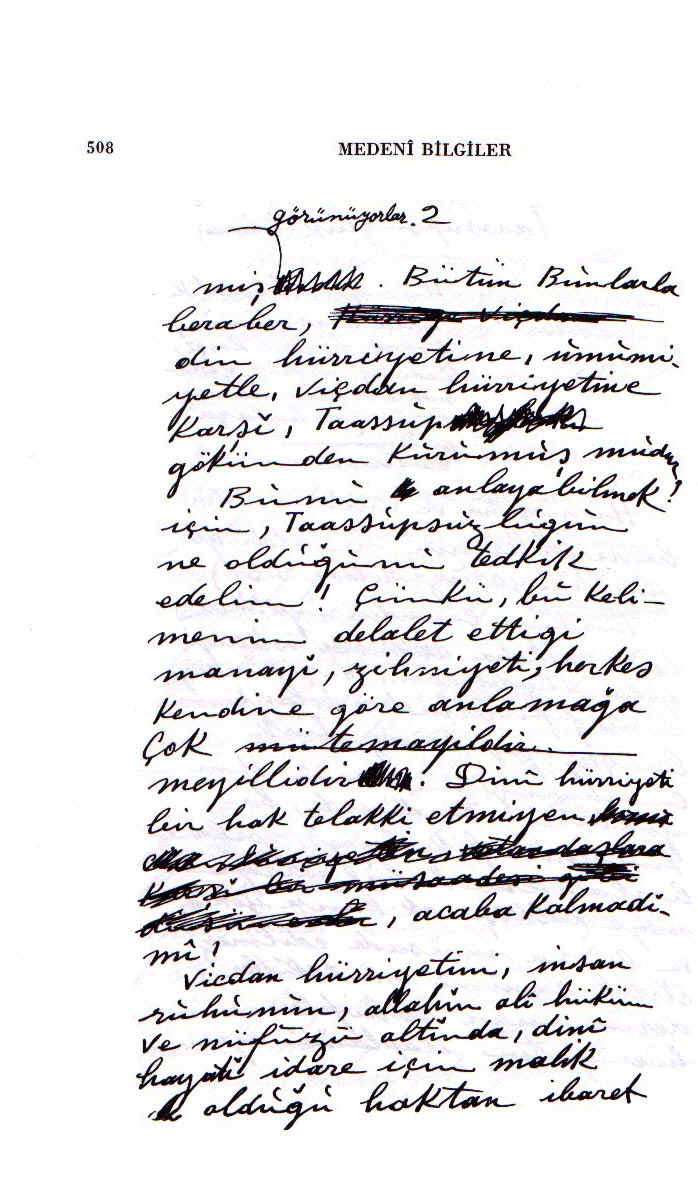 508 MEDENÎ BİLGİLER
görünüyorlar. 2
miş . Bütün Bünlarla
beraber,
din hürriyetine, ümümi-
yetle, viçdan hürriyetine
Karşi, Taassüp
kökünden Kürümüş müdür?
Bünü anlayabilmek
için, Taassüpsüzlügün
ne oldüğünü tedkik
edelim! Çünkü, bü Keli-
menin delalet ettigi
manayi, zihniyeti, herkes
Kendine göre anlamağa
Çok mütemayildir.
meyillidir . Dinî hürriyeti
bir hak telakki etmiyen
, acaba Kalmadi-
mî!
Vicdan hürriyetini, insan
rühünün, allahin alî hüküm
ve nüfüzü altinda, dinî
hayati idare için malik
oldüğü haktan ibaret